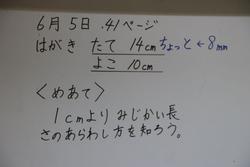 6月5日.41ページ
はがき たて 14cmちょっと←8mm
よこ 10cm
<めあて>
1cmよりみじかい長
さのあらわし方を知ろう。